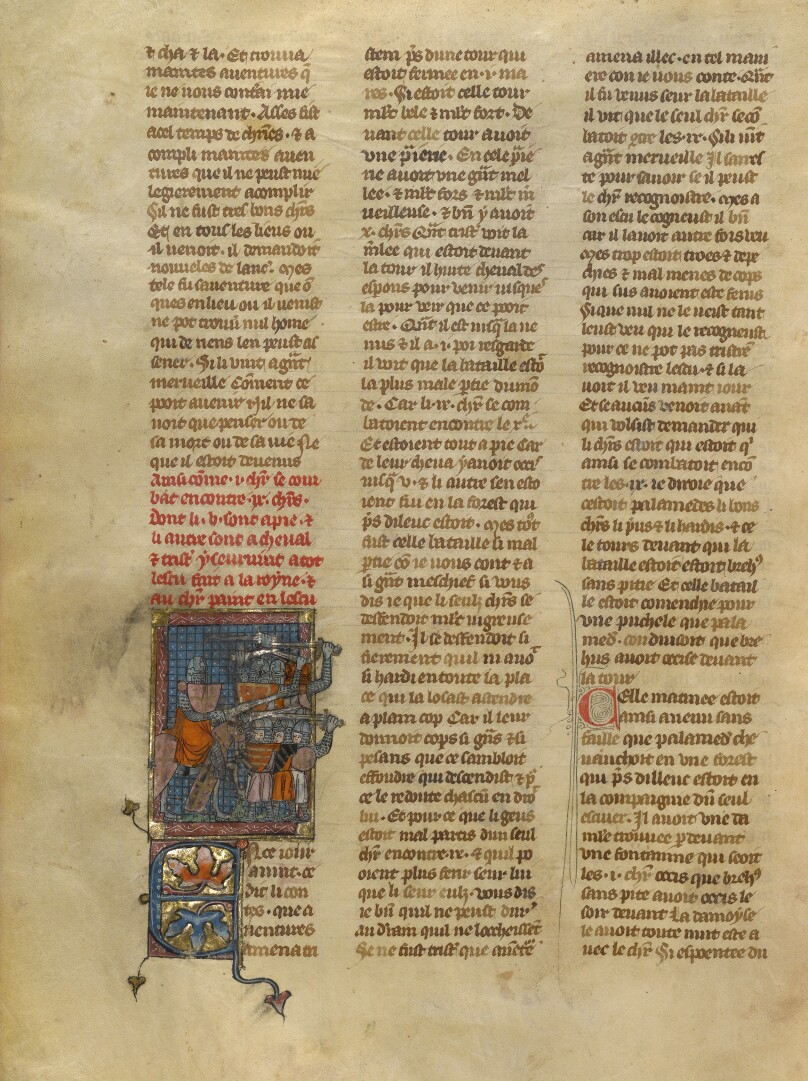 ⁊ cha ⁊ la. Et trouua
maintes auentures q̄
ie ne uous contai mie
maintenant. Asses fist
a cel temps de ch̄ries. ⁊ a
compli maintes auen
tures que il ne peust mie
legierement acomplir
Sil ne fust tres bons chr̄s
Et en tous les lieus ou
il uenoit. il demandoit
nouueles de lanc̄. mes
tele fu sauenture que o
ques en lieu ou il uenist
ne pot trouū nul home
qui de riens len peust as
sener. Si li uint a gn̄t
merueille Cōment ce
pooit auenir ⁊ il ne sa
uoit que penser ou de
sa mort ou de sa uie Ne
que il estoit deuenus
Ainsi cōme .i. chr̄ se com
bat encontre .ix. chr̄s.
dont li .v. sont a pie. ⁊
li autre sont a cheual
⁊ trist̄ y seuruint a tot
lescu
au chr̄ paint en lescu
A ce iour
auint ce
dit li con
tes. que a
uentures
amena tri
stem p̄s dune tour qui
estoit fermee en .i. ma
res. Si estoit celle tour
ml̄t bele ⁊ ml̄t fort. De
uant celle tour auoit
vne p̄rie. En cele p̄rie
ne auoit vne gn̄t mel
lee. ⁊ ml̄t fors ⁊ ml̄t m̄
ueilleuse. ⁊ bn̄ y auoit
x. chr̄s Qn̄t trist̄ voit la
mlee qui estoit deuant
la tour il hurte cheual des
esp̄ons pour venir iusques
la pour veir que ce pooit
estre. Qn̄t il est iusq̄ la ue
nus ⁊ il a .i. poi resgarde
il voit que la bataille estoi
la plus male p̄tie du mō
de. Car li .ix. chr̄ se com
batoient encontre le
Et estoient tout a pie Car
de leur cheua y auoit occis
iusq̄ v. ⁊ li autre sen esto
ient fui en la forest qui
p̄s dileuc estoit. mes tōt
fust celle bataille si mal
p̄tie cō ie uous cont ⁊ a
si gn̄t meschief si vous
dis ie que li seulz chr̄s se
deffendoit ml̄t uigreuse
ment. Il se deffendoit si
fierement quil ni auoi
si hardi en toute la pla
ce qui losast atendre
a plain cop Car il leur
donnoit cops si gn̄s ⁊ si
pesans que ce sambloit
effoudre qui descendist ⁊ p̄
ce le redoute chascū en dro
bu. Et pour ce que li geus
estoit mal partis dun seul
chr̄ encontre .ix. ⁊ quil po
oient plus ferir seur lui
que li seur eulz. vous dis
ie bn̄ quil ne peust durer
au drain quil ne loccheissent
Se ne fust trist̄ que auēt̄e
amena illec. en tel mani
ere con ie uous conte. Qn̄t
il fu venus seur la bataille
il vit que le seul chr̄ se cō
batoit 9tre les .ix. Si li uīt
a gn̄t merueille Il sarres
te pour sauoir se il peust
le chr̄ recognoistre. mes a
son escu le cogneust il bn̄
car il lauoit autre fois veu
mes trop estoit troes ⁊ depe
chies ⁊ mal menes de cops
qui sus auoient este ferus
Si que nul ne le ueist tant
leust veu qui le recogneust
pour ce ne pot pas tristr̄e
recognoistre lescu. ⁊ si la
uoit il veu maint iour
Et se aucūs venoit auāt
qui volsist demander qui
li chr̄s estoit qui estoit q̄
ainsi se combatoit encō
tre les .ix. ie diroie que
cestoit palamedes li bons
chr̄s li p̄us ⁊ li hardis. ⁊ ce
le tours deuant qui la
bataille estoit estoit breh9
sans pitie Et celle batail
le estoit comenche pour
vne puchele que pala
med̄. conduisoit que bre
hus auoit occise deuant
la tour
Celle matinee estoit
ainsi auenu sans
faille que palamed̄ che
uauchoit en vne forest
qui p̄s dilleuc estoit en
la compaignie dū seul
escuier. Il auoit vne da
mlle trouuee p̄ deuant
vne fontainne qui seoit
les .i. chr̄ occis que breh9
sans pite auoit occis le
soir deuant La damoyse
le auoit toute nuit este a
uec le chr̄ Si espoentee du